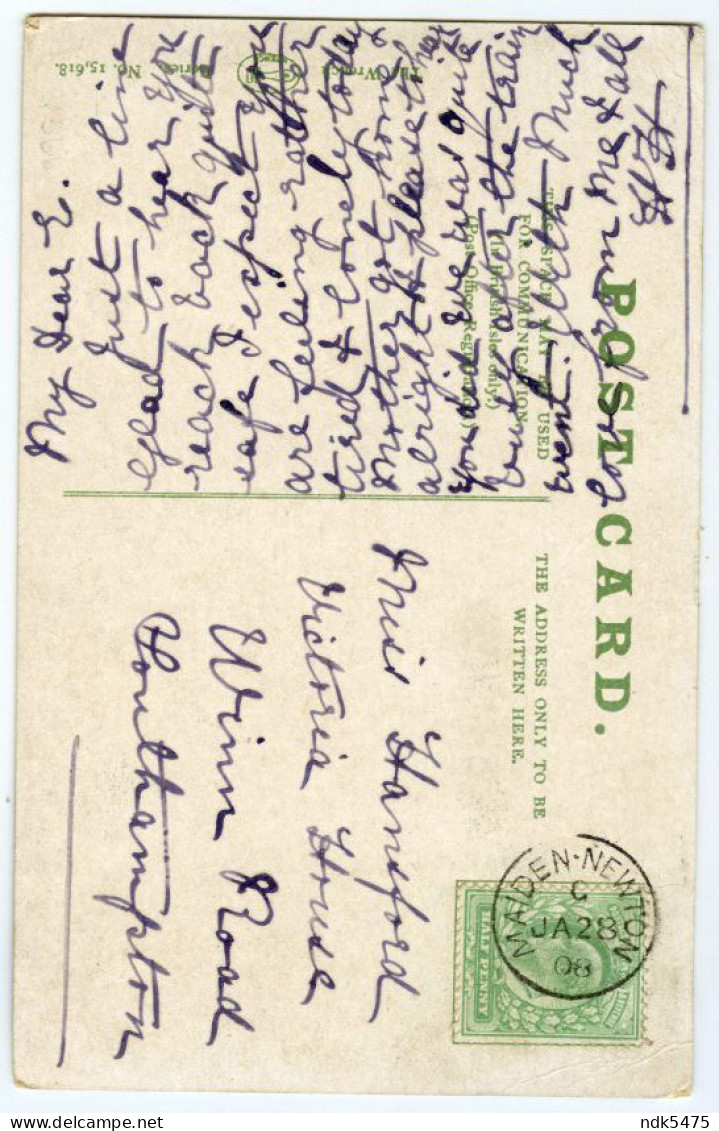 POST CARD.
THIS SPACE MAY BE USED
FOR COMMUNICATION
(In British Isles only.)
(Post Office Regulation.)
THE ADDRESS ONLY TO BE
WRITTEN HERE.
My Dear E.
Just a line
Glad to hear you
reach back quite
safe I expect you
are feeling rather
tired & lonely to day
got home
alright & please to hear
you did Eve was quite
after the train
went. With Much
love from Me & all
Miss Hansford
Victoria House
Winn Road
Southampton
MAIDEN-NEWTON
C
JA 28
08
HALF PENNY
The Wrench Series, No. 15,618.
ndk5475